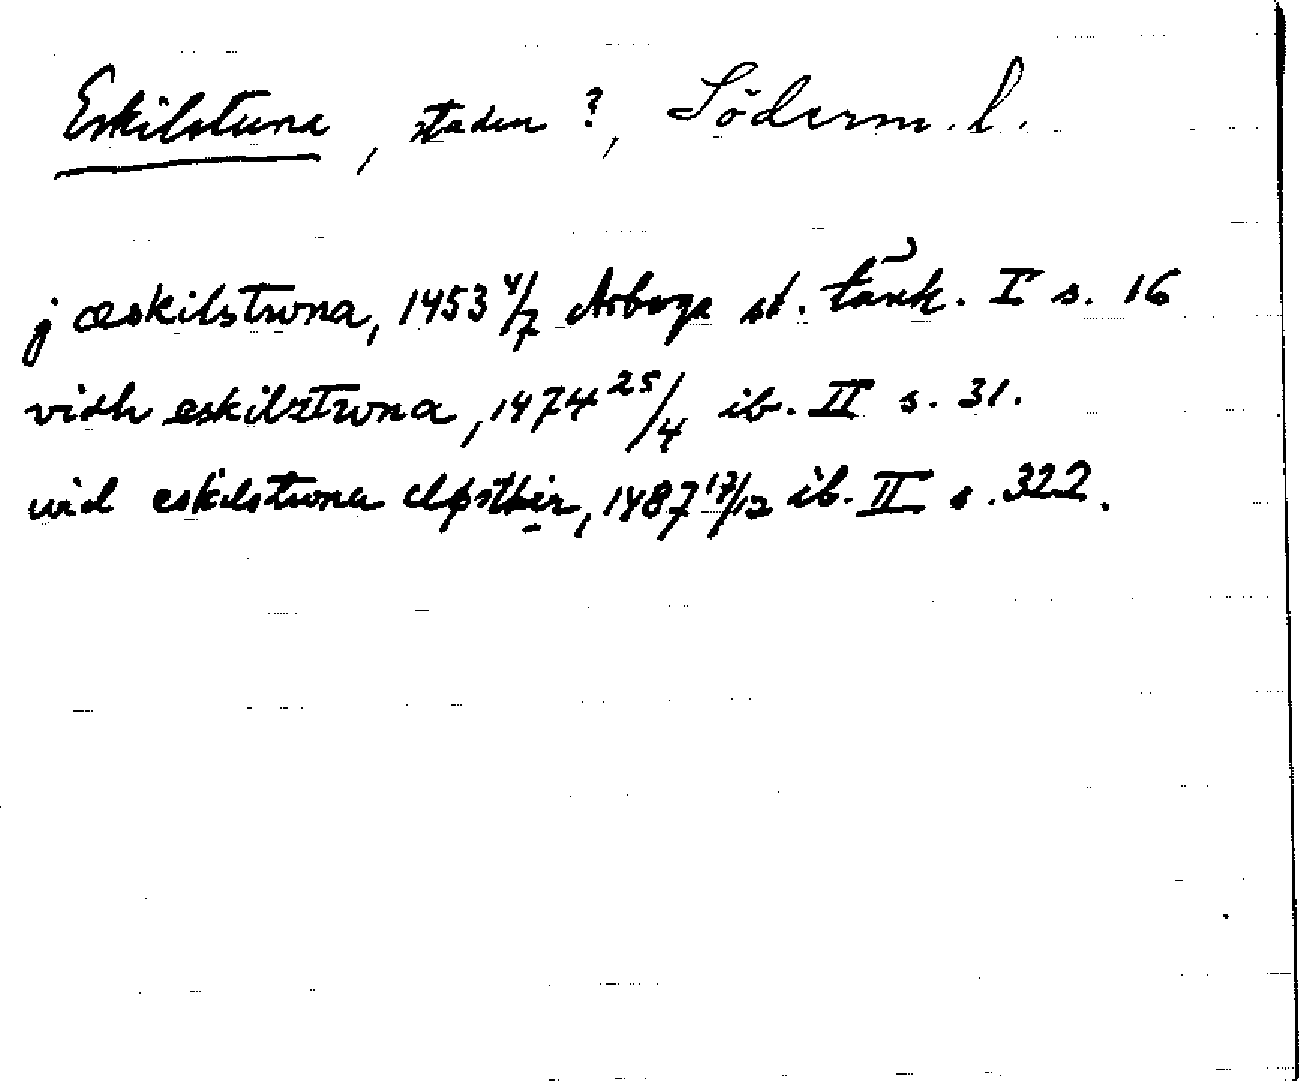 Eskilstuna, staden?, Söderm. l.
j æskilstwna, 1453 4/7 Arboga st. tänk. I s. 16
vidh eskilztwna, 1474 25/4 ib. II s. 31.
wid eskilstwna 1487 17/12 ib. II s. 322.